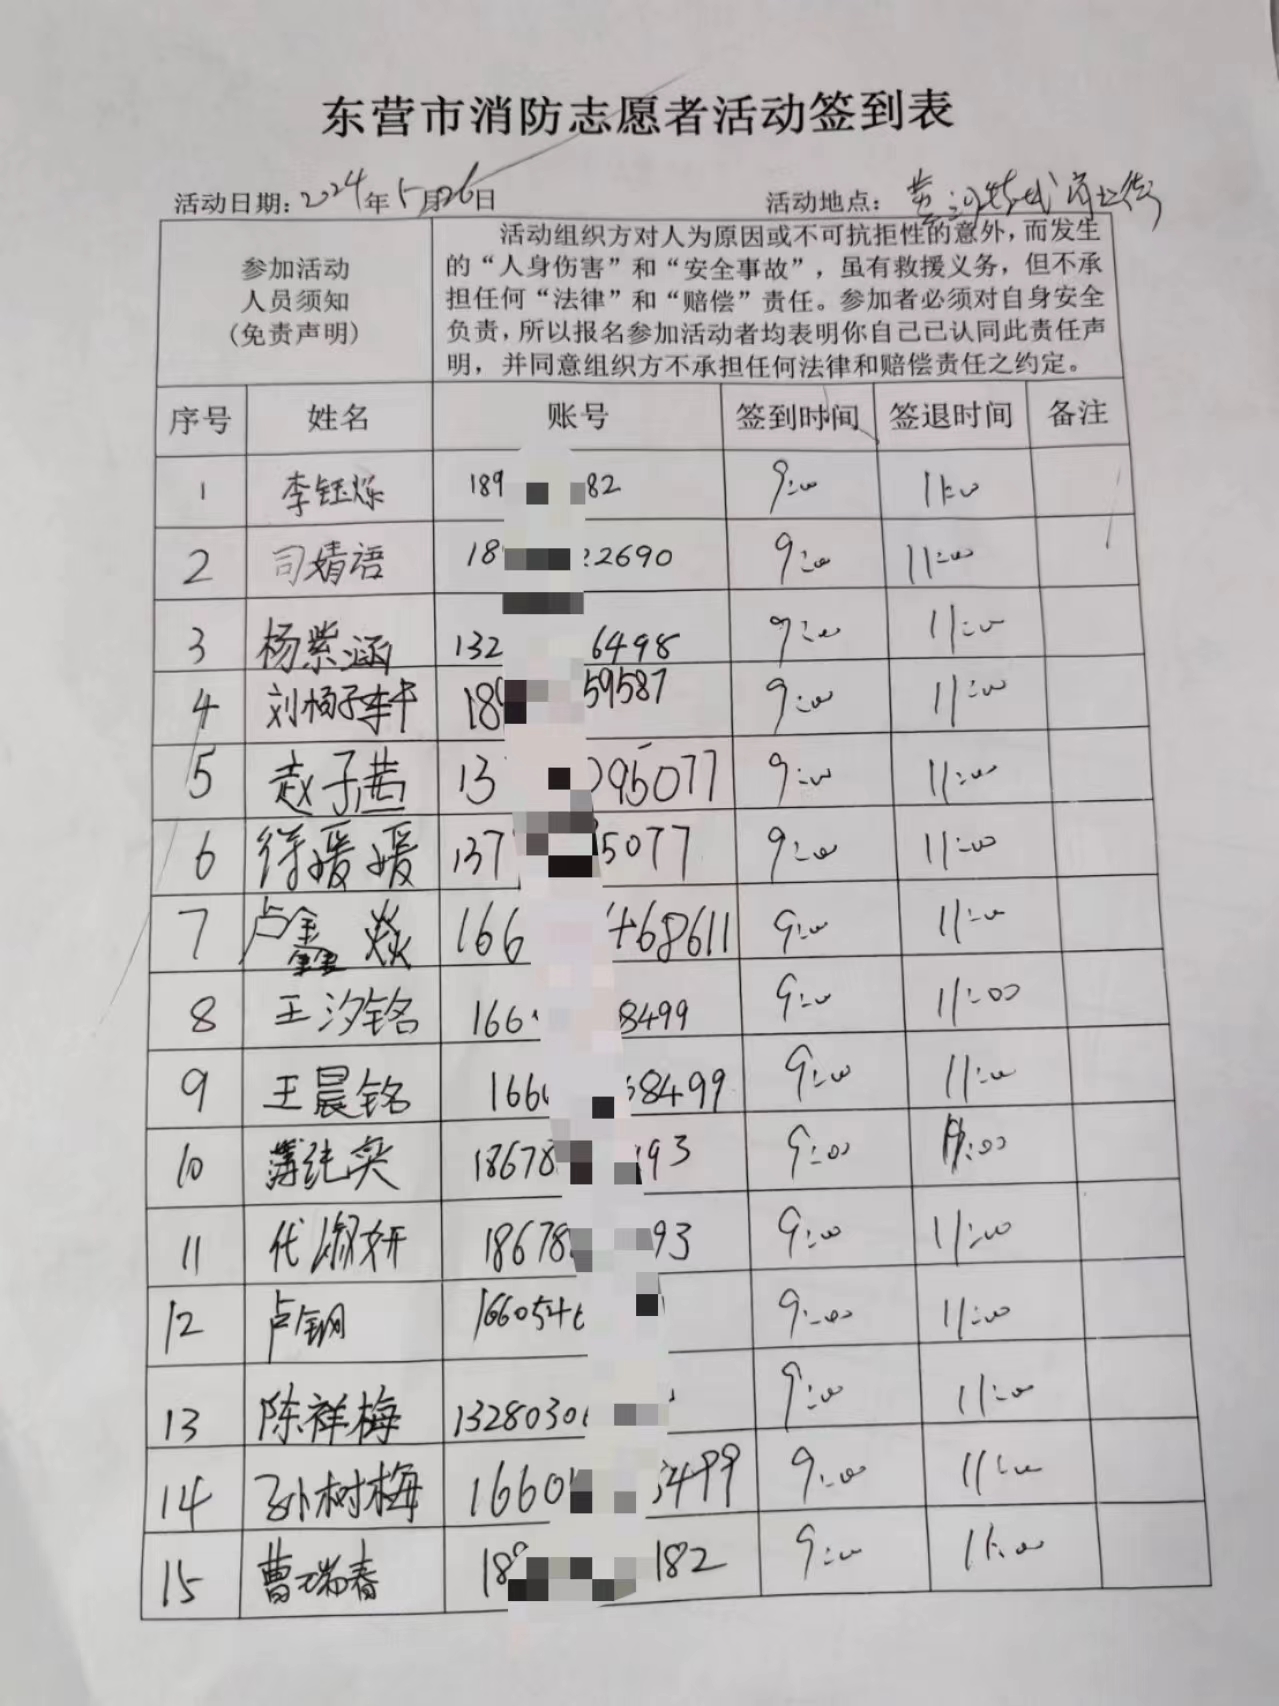 东营市消防志愿者活动签到表
活动日期：2024年5月26日 活动地点：
参加活动
人员须知
(免责声明)
活动组织方对人为原因或不可抗拒性的意外，而发生
的“人身伤害”和“安全事故”，虽有救援义务，但不承
担任何“法律”和“赔偿”责任。参加者必须对自身安全
负责，所以报名参加活动者均表明你自己已认同此责任声
明，并同意组织方不承担任何法律和赔偿责任之约定。
序号 姓名 账号 签到时间 签退时间 备注
1 李钰烁 189 82 9:00 11:00
2 司婧语 18 22690 9:00 11:00
3 杨紫涵 132 6498 9:00 11:00
4 刘杨子轩 18 59587 9:00 11:00
5 赵子茜 13 095077 9:00 11:00
6 徐媛媛 137 5077 9:00 11:00
7 卢鑫焱 166 468611 9:00 11:00
8 王汐铭 166 8499 9:00 11:00
9 王晨铭 166 68499 9:00 11:00
10 薄纯奕 18678 193 9:00 11:00
11 代淑妍 18678 93 9:00 11:00
12 卢钢 1660546 9:00 11:00
13 陈祥梅 1328030 9:00 11:00
14 孙树梅 1660 8499 9:00 11:00
15 曹瑞春 189 182 9:00 11:00